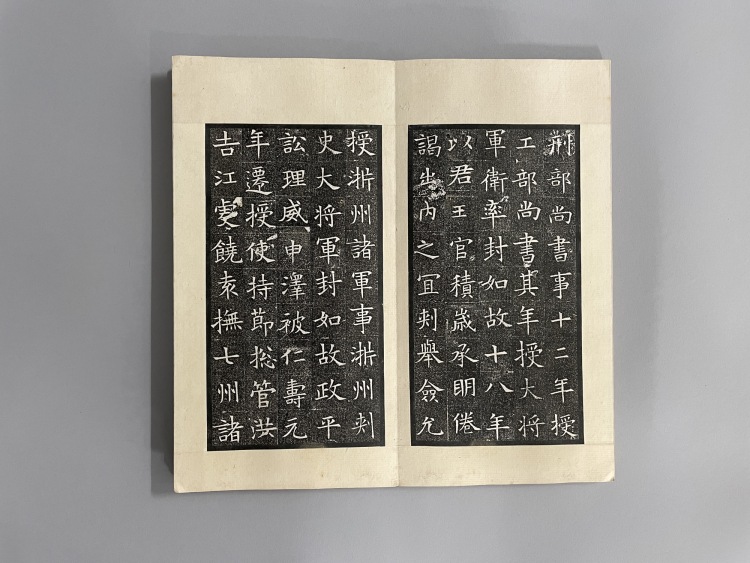 刑部尚書事十二年授
工部尚書其年授大将
軍衛率封如故十八年
以君王官積歲承明倦
謁出內之冝刾舉僉允
授淅州諸軍事淅州刾
史大将軍封如故政平
訟理威申澤被仁壽元
年遷授使持節揔管洪
吉江虔饒袁撫七州諸